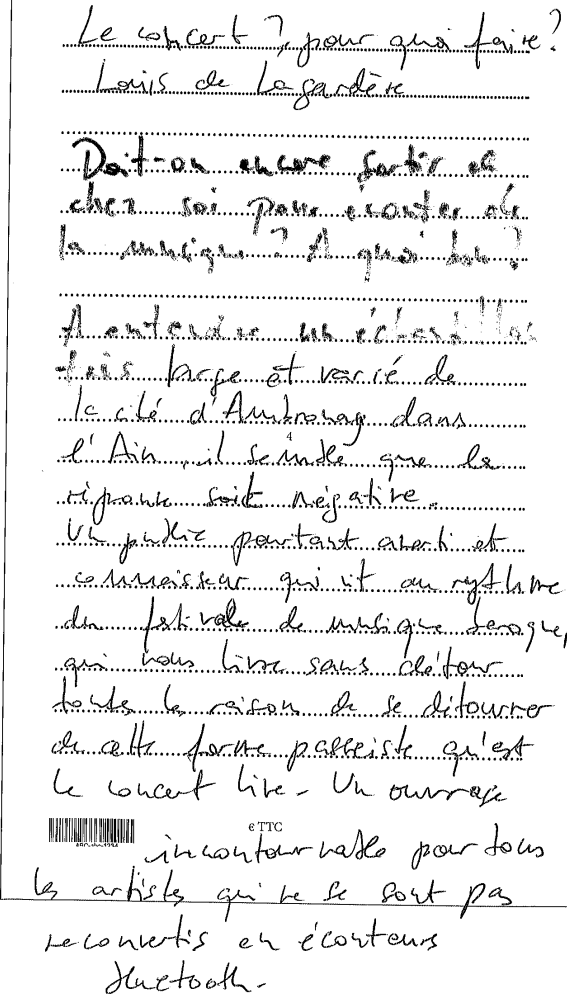 Le concert ?, pour quoi faire?
Louis de Lagardère
Doit-on encore sortir de
chez soi pour écouter de
la musique ? A quoi bon ?
A entendre un échantillon
très large et varié de
la cité d'Ambronay dans
l'Ain, il semble que la
réponse soit négative.
Un public pourtant averti et
connaisseur qui vit au rythme
du festival de musique baroque,
qui nous livre sans détour
toutes les raison de se détourner
de cette forme passéiste qu'est
le concert live. Un ouvrage
€ TTC
incontournable pour tous
les artistes qui ne se sont pas
reconvertis en écouteurs
bluetooth.